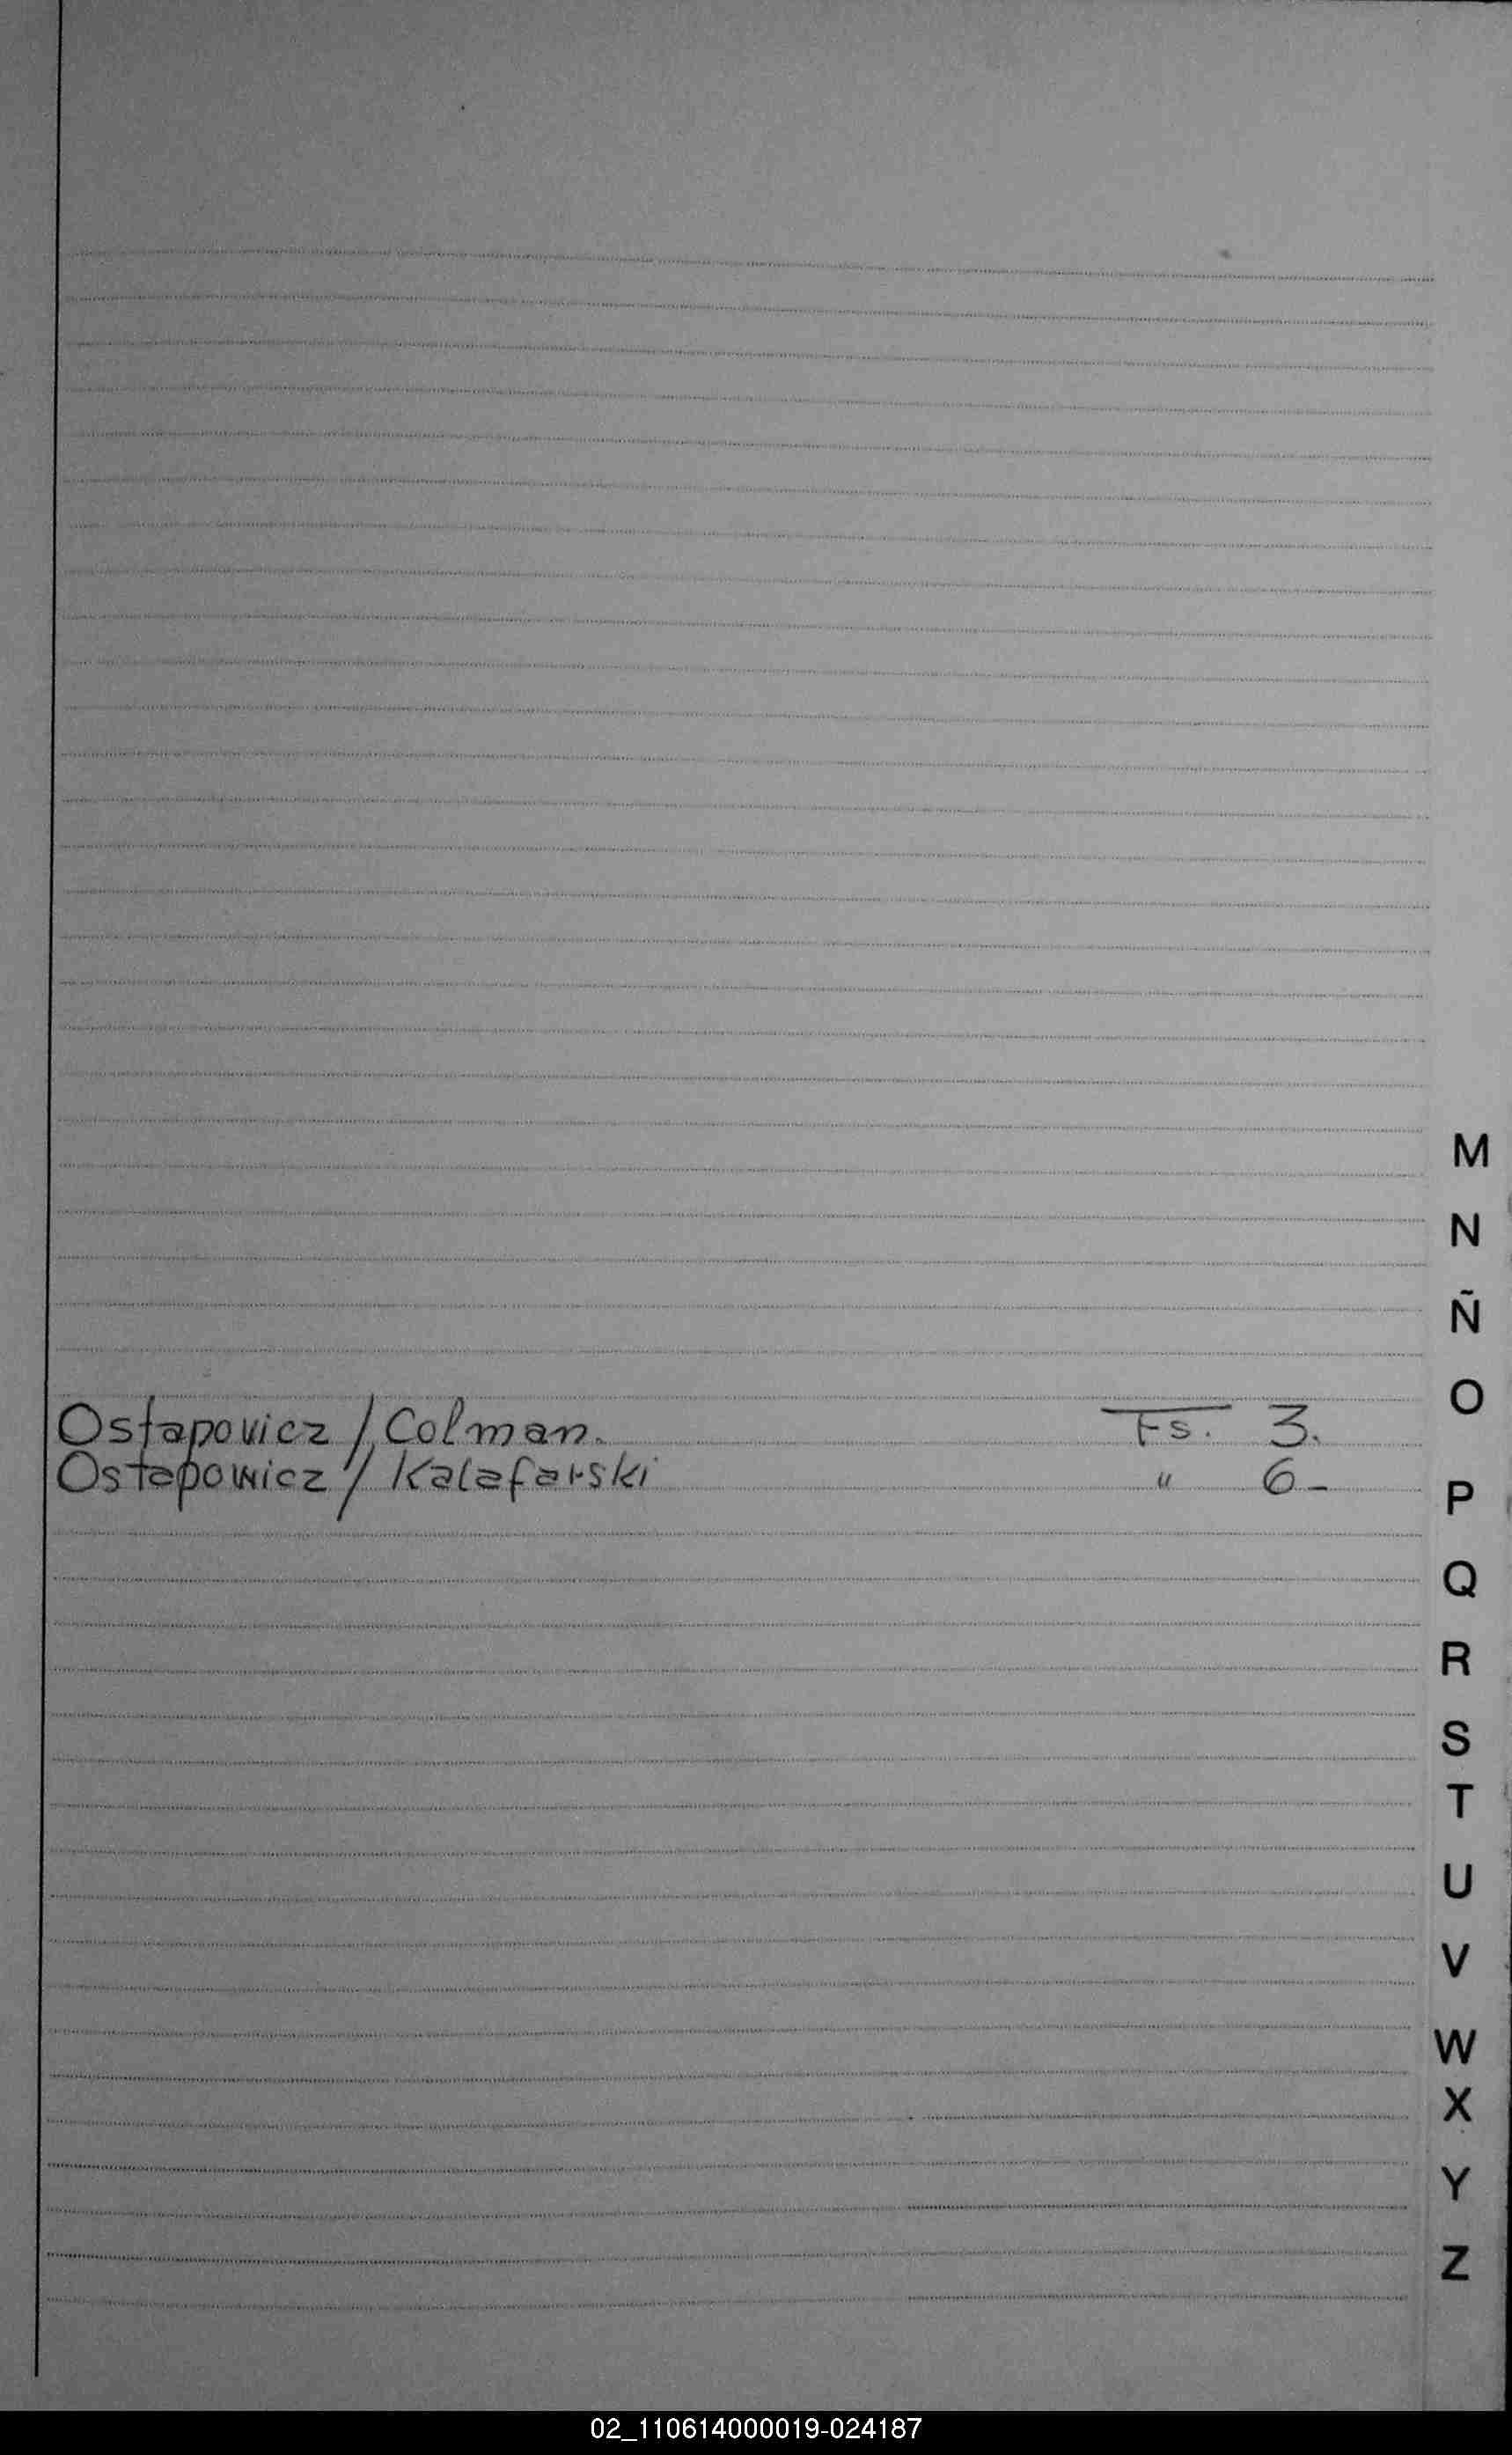 M
N
Ñ
O
Ostapovicz / Colman. Fs. 3.
Ostapowicz / Kalafarski " 6-
P
Q
R
S
T
U
V
W
X
Y
Z
02_110614000019-024187